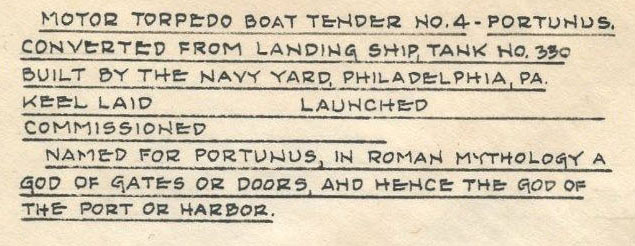 MOTOR TORPEDO BOAT TENDER NO. 4 - PORTUNUS.
CONVERTED FROM LANDING SHIP, TANK NO. 330
BUILT BY THE NAVY YARD, PHILADELPHIA, PA.
KEEL LAID LAUNCHED
COMMISSIONED
NAMED FOR PORTUNUS, IN ROMAN MYTHOLOGY A
GOD OF GATES OR DOORS, AND HENCE THE GOD OF
THE PORT OR HARBOR.